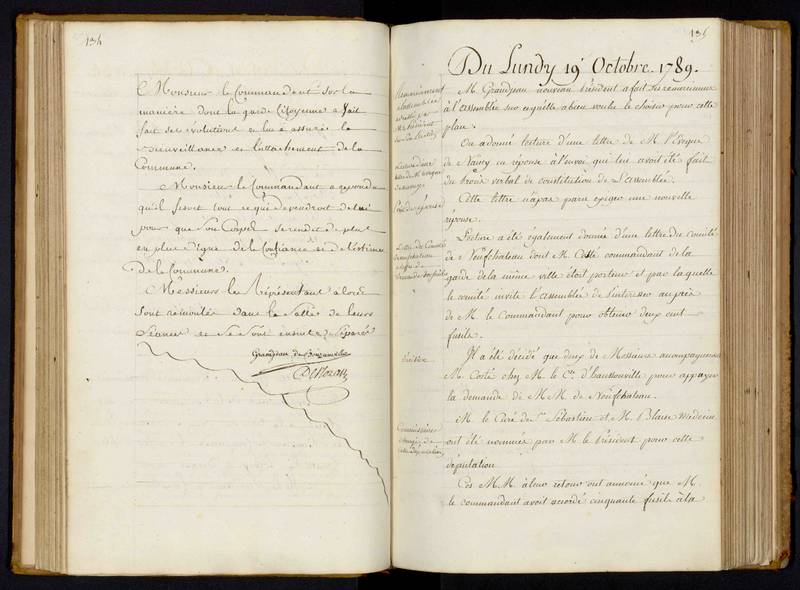 134
Monsieur le Commendant sur la
maniere dont la garde Citoyenne a fait
fait ses evolutions et lui a assuré la
bienveillance et l'attachement de la
Commune.
Monsieur le Commandant a repondu
qu'il feroit tout ce qui dependroit de lui
pour que son Corps se rendit de plus
en plus digne de la Confiance et de l'estime
de la Commune.
Messieurs les Répresentants alors
sont remontés dans la Salle de leurs
Séances et se sont ensuite séparés
Grandjean de Bouzanville
135
Du Lundy 19 Octobre 1789.
Remerciement
à l'assemblée
par
M. le President
Lecture d'une
lettre de M. l'Eveque
de Nancy
Point de réponse
Lettre du Comité
de Neufchateau
M. Grandjean nouveau President a fait ses remerciemens
à l'assemblée sur ce qu'elle a bien voulu le choisir pour cette
place.
On a donné lecture d'une lettre de M. l'Eveque
de Nancy en réponse à l'envoi qui lui avoit été fait
du procès verbal de constitution de l'assemblée.
Cette lettre n'a pas paru exiger une nouvelle
réponse.
Lecture a été également donnée d'une lettre du comité
de Neufchateau dont M. Costé commandant de la
garde de la même ville étoit porteur et par laquelle
le comité invite l'assemblée de s'interesser auprès
de M. le Commandant pour obtenir deux cent
fusils.
Il a été décidé que deux de Messieurs accompagneroient
M. Costé chez M. le Cte. d'haussonville pour appuyer
la demande de M M. de Neufchateau.
Commissaires
chargés de
cette députation
M. le Curé de St. Sébastien et M. Blaise Medecin
ont été nommés par M. le Président pour cette
députation
Ces M M. à leur retour ont annoncé que M.
le commandant avoit accordé cinquante fusils à la